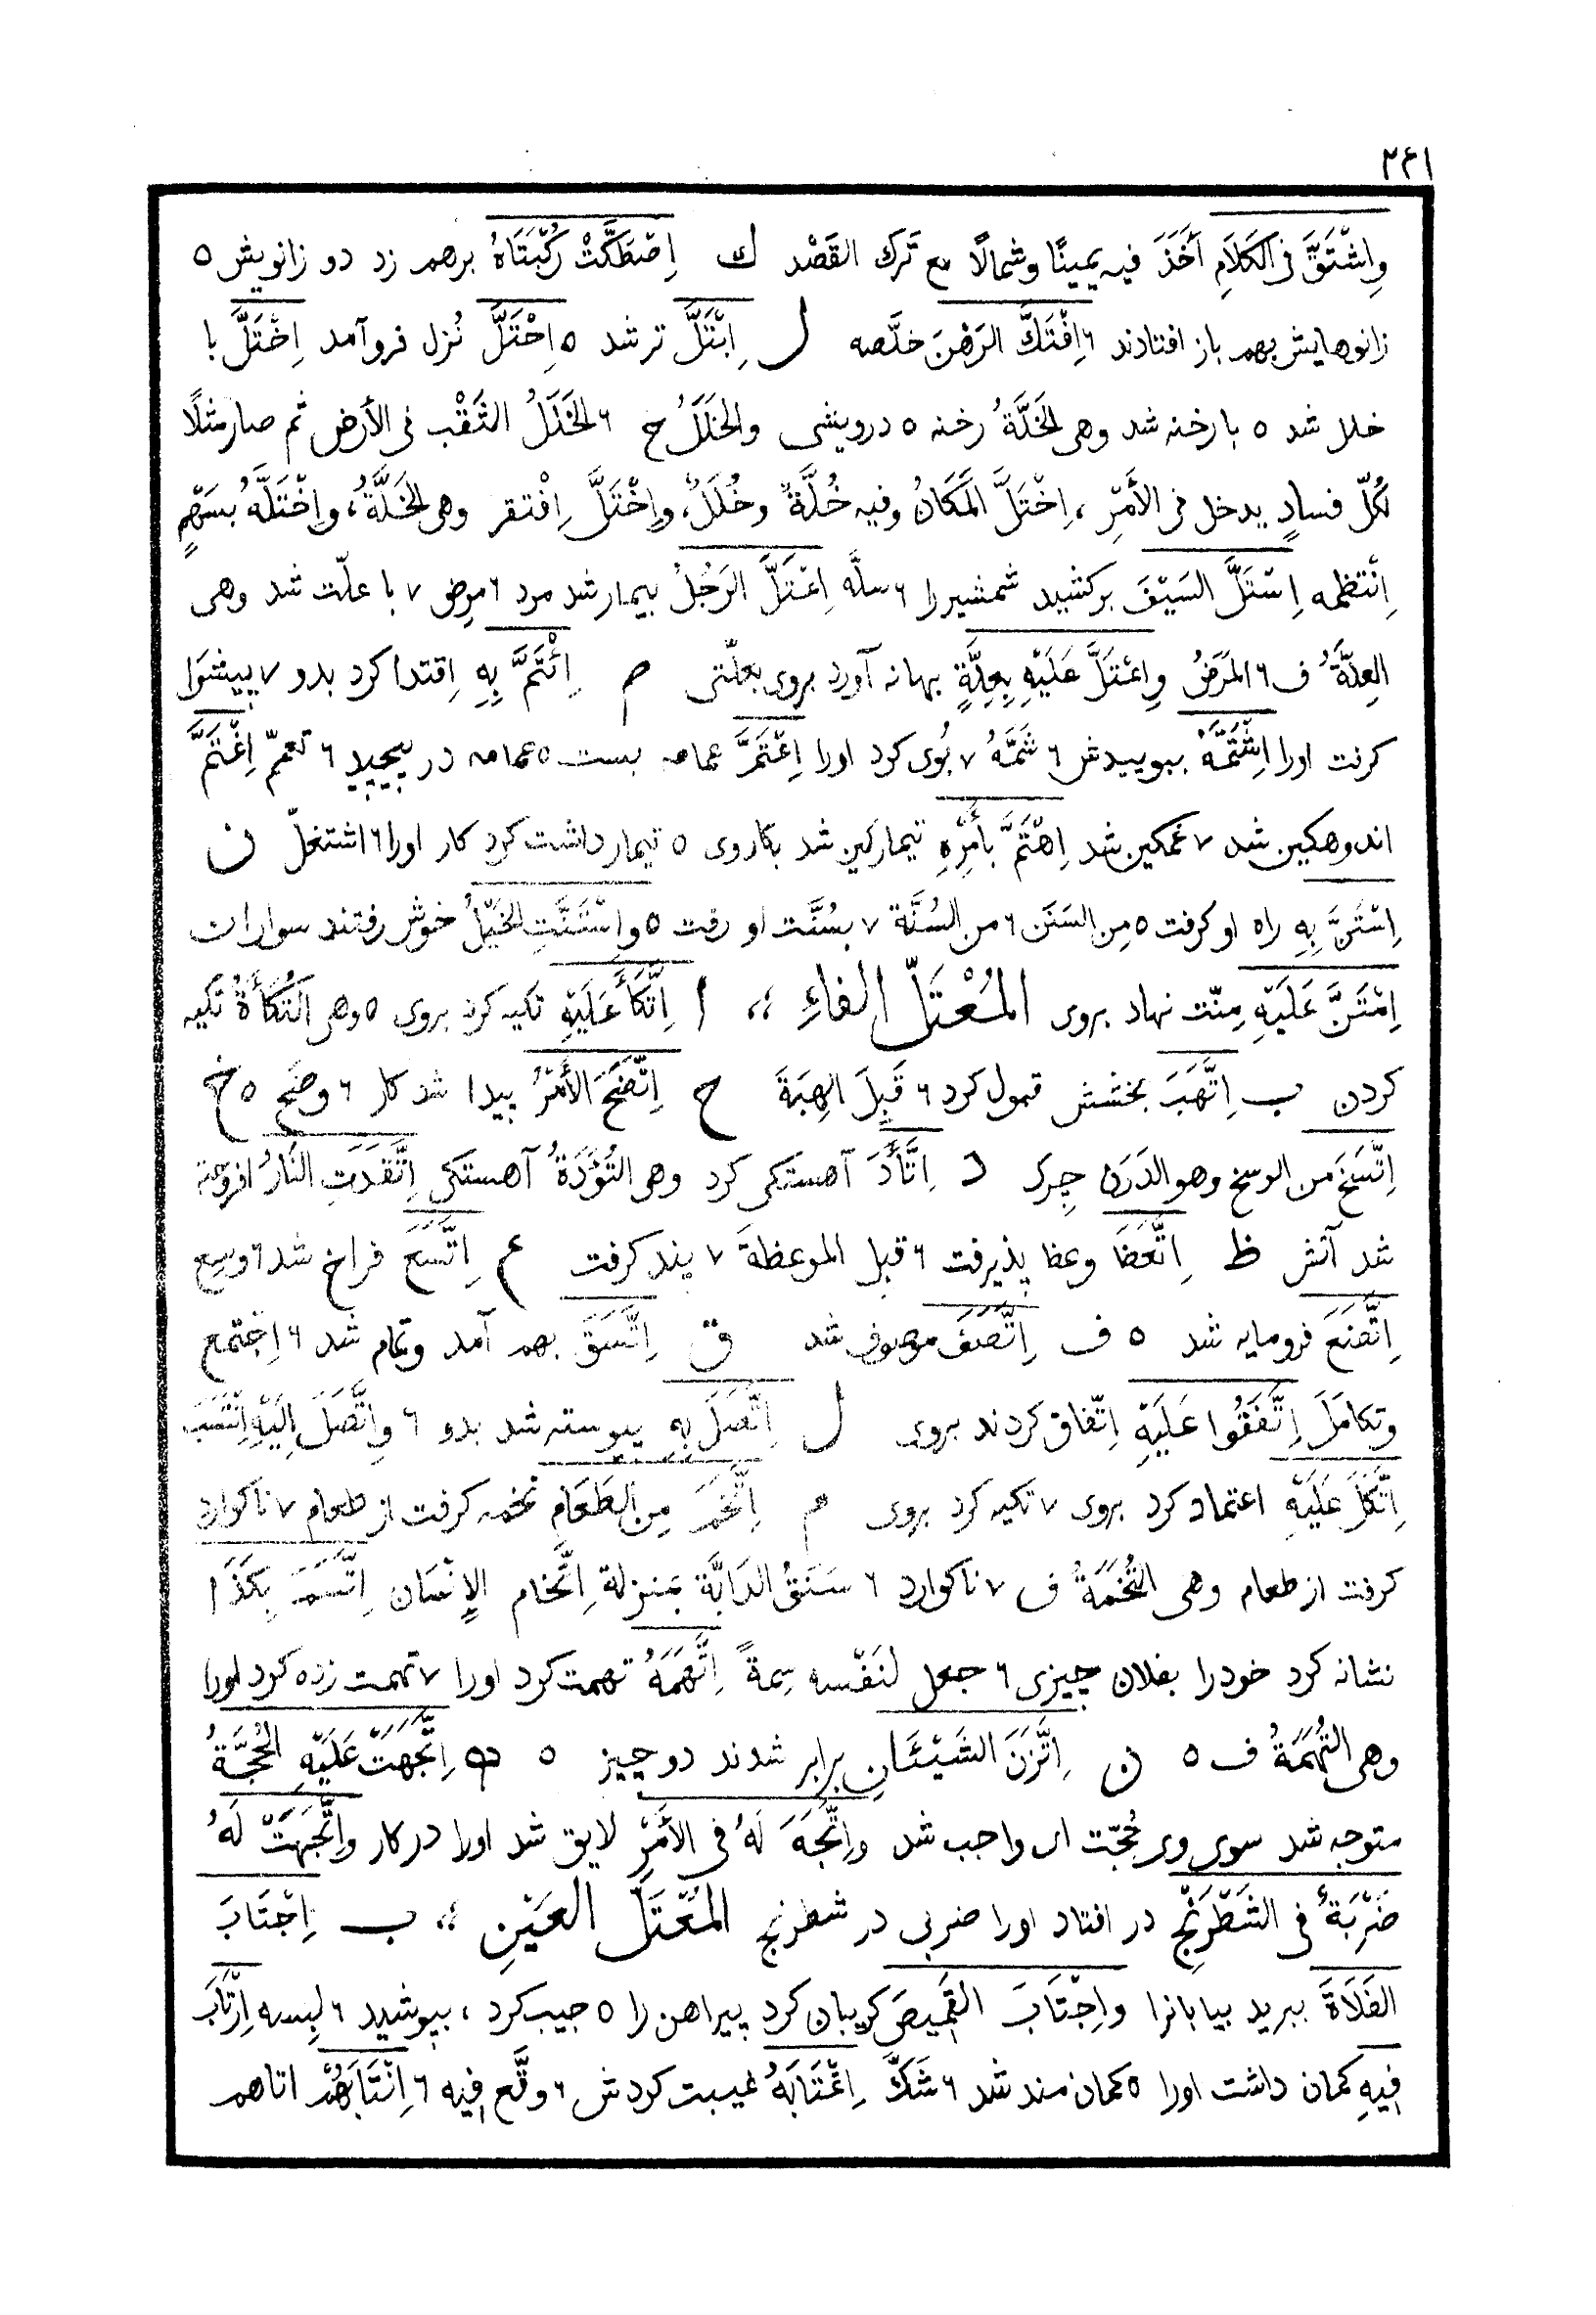 ۲۴۱
وِاشْتَقَّ فی الکَلَامِ أَخَذَ فیه یمینًا وشمالًا مع تَرک القَصْد ك اِصْطَکَّتْ رُکْبَتَاهُ برهم زد دو زانویش ٥
زانوهایش بهم باز افتادند ٦ اِفْتَكَّ الرَهْنَ خلَّصه ل اِبْتَلَّ تر شد ٥ اِحْتَلَّ نُزل فروآمد اِخْتَلَّ با
خلل شد ٥ با رخنه شد وهی الخَلَّةُ رخنه ٥ درویشی والخَلَلُ ج ٦ الخَلَلُ الثَقْب فی الأرض ثم صار مثلًا
لکُلّ فسادٍ یدخل فی الأَمْرِ ، اِخْتَلَّ المَکَانُ وفیه خُلَّةٌ وخُلَلٌ، واِخْتَلَّ اِفْتقر وهی الخَلَّةُ، واِخْتَلَّهُ بسَهْمٍ
اِنْتظمه اِسْتَلَّ السَیْفَ برکشید شمشیر را ٦ سلَّه اِعْتَلَّ الرَجُلُ بیمار شد مرد ٦ مرِض ٧ با علّت شد وهی
العِلَّةُ ف ٦ المَرَضُ واِعْتَلَّ عَلَیْهِ بِعِلَّةٍ بهانه آورد بروی بعلّتی م اِئْتَمَّ بِهِ اِقتدا کرد بدو ٧ پیشوا
کرفت اورا اِشْتَمَّهُ ببوییدش ٦ شَمَّهُ ٧ بُوی کرد اورا اِعْتَمَّ عمامه بست ٥ عمامه در پیچید ٦ تعمّم اِغْتَمَّ
اندوهکین شد ٧ غمکین شد اِهْتَمَّ بأَمْرِهِ تیمارکین شد بکار وی ٥ تیمار داشت کرد کار اورا ٦ اشتغل ن
اِسْتَنَّ بِهِ راه او کرفت ٥ مِن السَنَن ٦ من السُنَّة ٧ بسُنَّت او رفت ٥ واِسْتَنَّتِ الخَیْلُ خوش رفتند سواران
اِمْتَنَّ عَلَیْهِ مِنّت نهاد بروی المُعْتَلّ الفاءِ ،، ا اِتَّکَأَ عَلَیْهِ تکیه کرد بروی ٥ وهی التُکَأَةُ تکیه
کردن ب اِتَّهَبَ بخشش قبول کرد ٦ قَبِلَ الهِبَةَ ح اِتَّضَحَ الأَمْرُ پیدا شد کار ٦ وضَح ٥ خ
اِتَّسَخَ من الوسخ وهو الدَرَن چِرك د اِتَّأَدَ آهستکی کرد وهی التُؤَدَةُ آهستکی اِتَّقَدَتِ النَارُ افروخته
شد آتش ظ اِتَّعَظَ وعظ پذیرفت ٦ قبل الموعظةَ ٧ پند کرفت ع اِتَّسَعَ فراخ شد ٦ وسِع
اِتَّضَعَ فرومایه شد ٥ ف اِتَّصَفَ موصوف شد ق اِتَّسَقَ بهم آمد وتمام شد ٦ اِجْتمع
وتکامَلَ اِتَّفَقُوا عَلَیْهِ اِتّفاق کردند بروی ل اِتَّصَلَ بِهِ پیوسته شد بدو ٦ واِتَّصَلَ اِلَیْهِ اِنْتَسَبَ
اِتَّکَلَ عَلَیْهِ اعتماد کرد بروی ٧ تکیه کرد بروی م اِتَّخَمَ مِن الطَعَامِ تخمه کرفت از طعام ٧ ناکوارد
کرفت از طعام وهی التُخَمَةُ ف ٧ ناکوارد ٦ سَنَقُ الدَابَّة بمنزلة اِتِّخام الإِنْسَان اِتَّسَمَ بِکَذَا
نشانه کرد خودرا بفلان چیزی ٦ جعل لنَفْسه سِمةً اِتَّهَمَهُ تهمت کرد اورا ٧ تهمت زده کرد اورا
وهی التُهَمَةُ ف ٥ ن اِتَّزَنَ الشَیْئَانِ برابر شدند دو چیز ٥ ه اِتَّجَهَتْ عَلَیْهِ الحُجَّةُ
متوجه شد سوی وی حُجّت ای واجب شد واِتَّجَهَ لَهُ فی الأَمْرِ لایق شد اورا در کار واِتَّجَهَتْ لَهُ
ضَرْبَةٌ فی الشَطْرَنْجِ در افتاد اورا ضربی در شطرنج المُعْتَلّ العَیْنِ ،، ب اِجْتَابَ
الفَلَاةَ ببرید بیابانرا واِجْتَابَ القَمِیصَ کریبان کرد پیراهن را ٥ جیب کرد ، بپوشید ٦ لبِسه اِرْتَابَ
فِیهِ کمان داشت اورا ٥ کمان مند شد ٦ شَكَّ اِغْتَابَهُ غیبت کردش ٦ وقَّع فیه ٦ اِنْتَابَهُمْ اتاهم